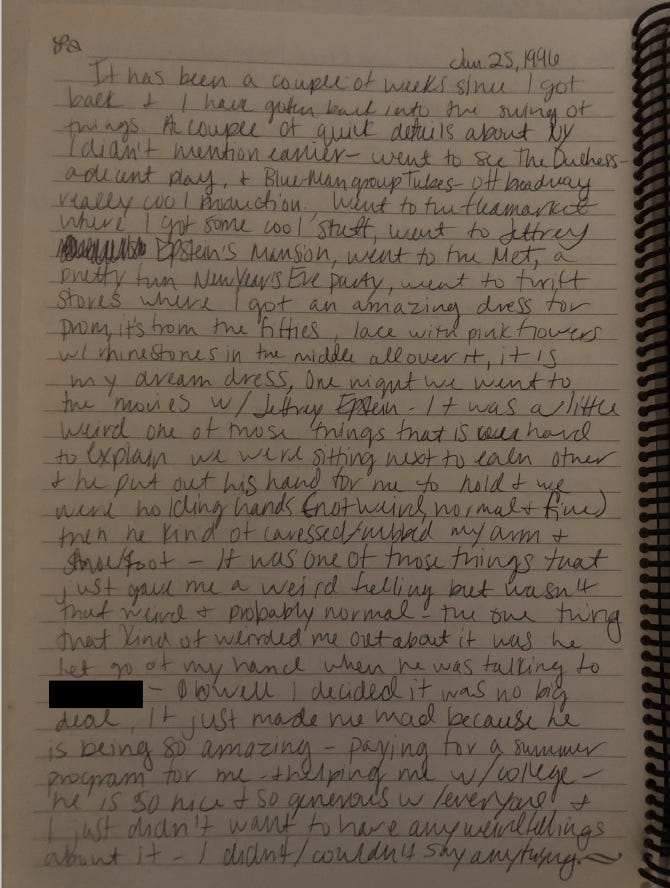 Jan. 25, 1996
It has been a couple of weeks since I got
back & I have gotten back into the swing of
things. A couple of quick details about NY
I didn't mention earlier - went to see The Duchess -
a decent play, & Blue Man group Tubes - Off broadway
really cool production, went to the fleamarket
where I got some cool stuff, went to Jeffrey
Epstein's Mansion, went to the Met, a
pretty fun New Year's Eve party, went to thrift
stores where I got an amazing dress for
prom, it's from the fifties, lace with pink flowers
w/ rhinestones in the middle all over it, it is
my dream dress, One night we went to
the movies w/ Jeffrey Epstein - It was a little
weird one of those things that is hard
to explain we were sitting next to each other
& he put out his hand for me to hold & we
were holding hands (not weird, normal & fine)
then he kind of caressed/rubbed my arm &
shoe/foot - It was one of those things that
just gave me a weird felling but wasn't
that weird & probably normal - the one thing
that kind of weirded me out about it was he
let go of my hand when he was talking to
- Oh well I decided it was no big
deal, It just made me mad because he
is being so amazing - paying for a summer
program for me - & helping me w/ college -
he is so nice & so generous w/ everyone &
I just didn't want to have any weird fellings
about it - I didn't/couldn't say anything.